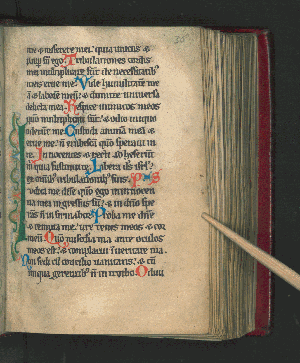 me & miserere mei: quia unicus &
paup sum ego. Tribulationes cordis
mei multiplicate sūt: de necessitatib'
meis erue me. Vide humilitatem me
ā & laborē meū: & dimitte universa
delicta mea. Respice inimicos meos
quō multiplicati sūt: & odio iniquo
oderunt me. Custodi animā meā &
erue me: ñ erubescā quō speravi in
te. Innocentes & recti adheserūt
m quia sustinui te. Libera ds isrl
ex omnib' tribulationib' suis. PS
Iudica me dñe quō ego in innocen
tia mea ingressus sū: & in dño spe
rans ñ infirmabor. Proba me dñe
& tempta me: ure renes meos & cor
meū. Quō mia tua ante oculos
meos est: & complacui in veritate tua.
Non sedi cū concilio vanitatis: & cū
iniqua gerentib' ñ introibo Odiui